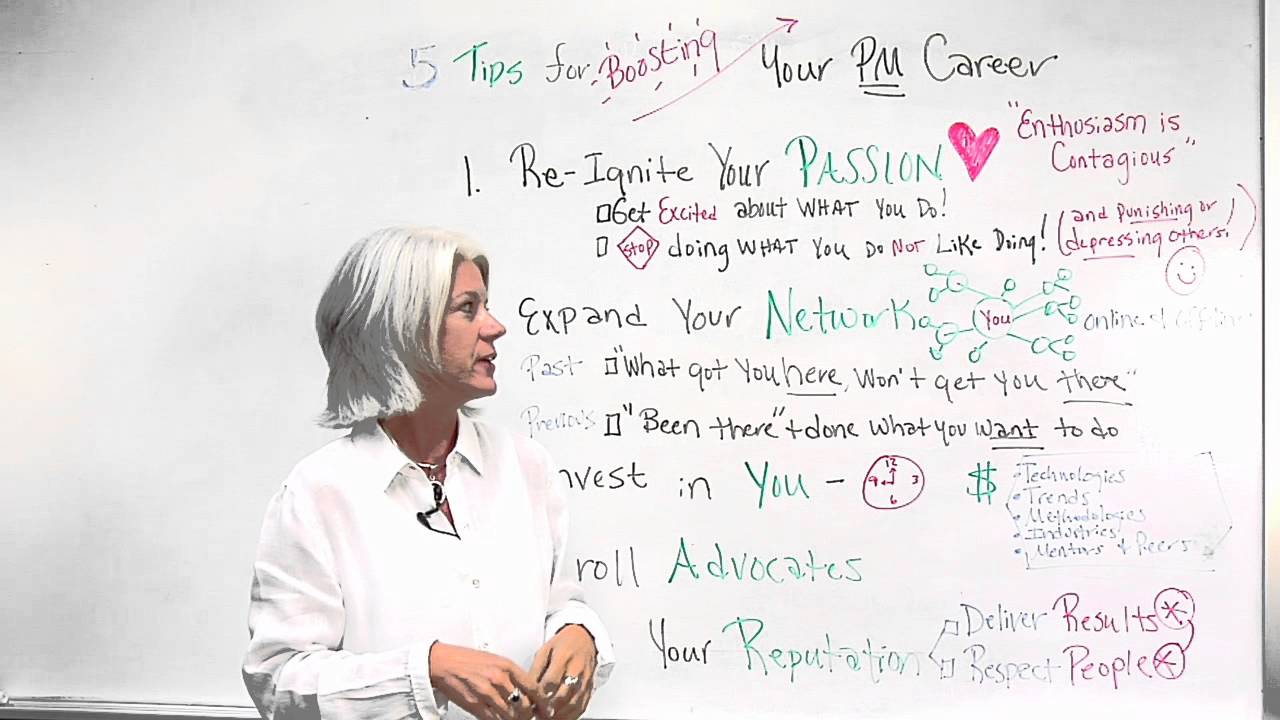 5 Tips for Boosting Your PM Career
1. Re-Ignite Your PASSION
"Enthusiasm is
Contagious"
Get Excited about WHAT YOU DO!
STOP doing WHAT YOU DO NOT LIKE DOING! (and punishing or
depressing others!)
Expand Your Network You online &
Past "What got you here, won't get you there"
Previous "Been there" + done what you want to do
nvest in You - 12 3 6 9 $
Technologies
Trends
Methodologies
Industries
Mentors & Peers
roll Advocates
Your Reputation
Deliver Results
Respect People